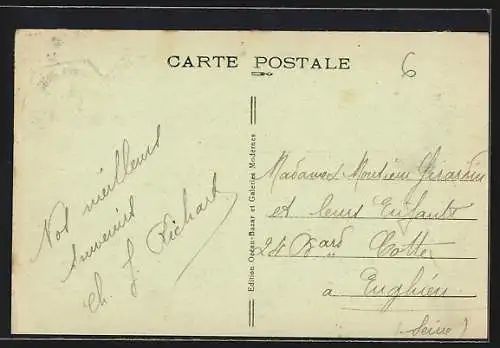 CARTE POSTALE
6
Nos meilleurs
souvenirs
Ch. J. Richard
Edition Océan-Bazar et Galeries Modernes
Madame Monsieur Girardin
et leurs Enfants
24 Bard Cotte
à Enghien
(Seine)